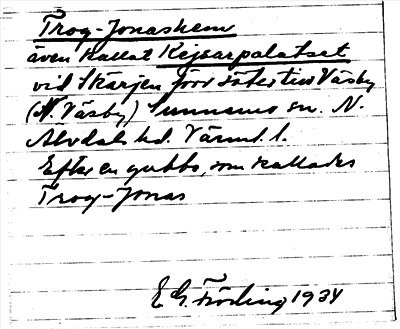 Trog-Jonashem
även kallat Kejsarpalatset
vid Skärjen, förr säter till Väsby
(N. Väsby) Sunnemo sn. N.
Älvdals hd. Värml. l.
Efter en gubbe, som kallades
Trog-Jonas
E G. Fröding 1934